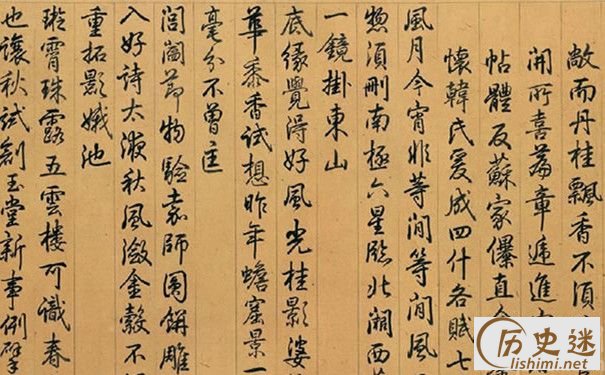 敞而丹桂飄香不須
開所喜篇章遞進
帖體反蘇家儤直
懷韓氏爰成四什各賦七
風月今宵非等閒等閒風
惣須刪南極六星臨北闕西
一鏡掛東山
底緣覺得好風光桂影婆
華黍香試想昨年蟾窟景一
毫分不曾匡
閶闔節物驗嘉師圓餅雕
入好詩太液秋風激金縠不
重拓影娥池
璇霄珠露五雲樓可識春
也讓秋試創玉堂新事例擘
历史迷
lishimi.net